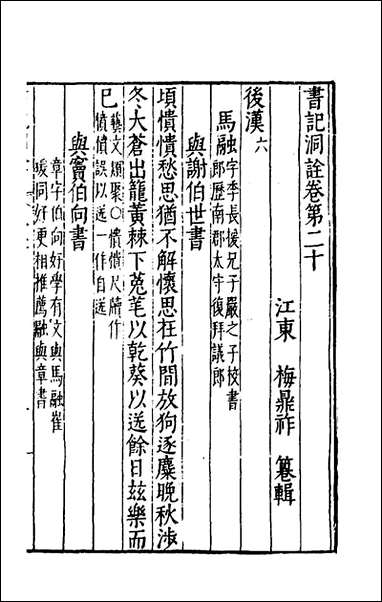 書記洞詮卷第二十
江東　梅鼎祚　纂輯
後漢六
馬融字季長援兄子嚴之子校書
郎歷南郡太守復拜議郎
與謝伯世書
頃憒憒愁思猶不解懷思在竹間放狗逐麋晚秋涉
冬大蒼出籠黃棘下菟芼以乾葵以送餘日茲樂而
已藝文類聚○憒憒尺牘作
憤憤誤以送一作自送
與竇伯向書
章字伯向好學有文與馬融崔
瑗同好更相推薦融與章書